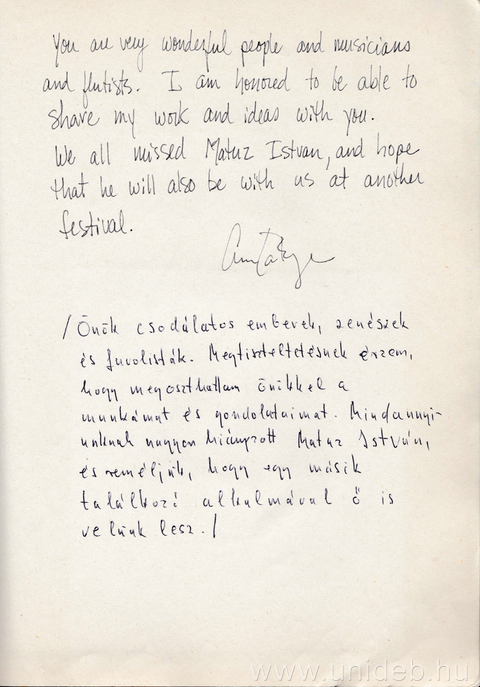 You are very wonderful people and musicians
and flutists. I am honored to be able to
share my work and ideas with you.
We all missed Matuz Istvan, and hope
that he will also be with us at another
festival.
/Önök csodálatos emberek, zenészek
és fuvolisták. Megtiszteltetésnek érzem,
hogy megoszthattam önökkel a
munkámat és gondolataimat. Mindannyi-
unknak nagyon hiányzott Matuz István,
és reméljük, hogy egy másik
találkozó alkalmával ő is
velünk lesz./
www.unideb.hu